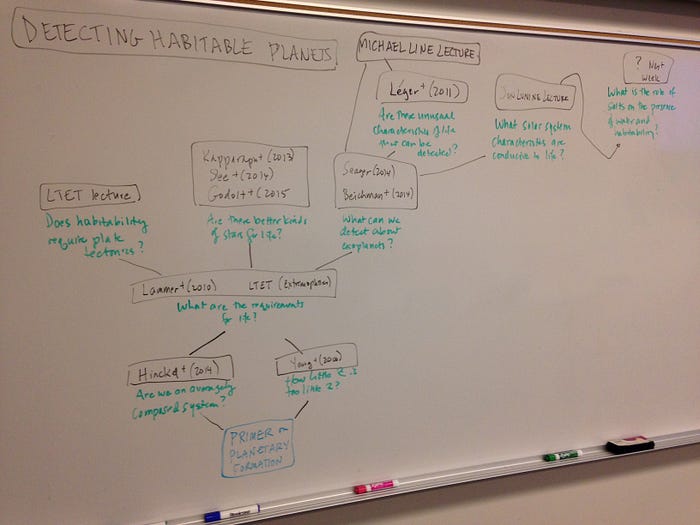 DETECTING HABITABLE PLANETS
MICHAEL LINE LECTURE
? Next
week
What is the role of
salts on the presence
of water and
habitability?
Léger+ (2011)
Are there unusual
characteristics of life
that can be
detected?
JON LUNINE LECTURE
What solar system
characteristics are
conducive to life?
Kopparapu+ (2013)
See+ (2014)
Godolt+ (2015
Are there better kinds
of stars for life?
Seager (2014)
Beichman+ (2014)
What can we
detect about
exoplanets?
LTET lecture
Does habitability
require plate
tectonics?
Lammer+ (2010) LTET (Extremophiles)
What are the requirements
for life?
Hinckel+ (2014)
Are we an averagely
composed system?
Young+
How little
too little
PRIMER on
PLANETARY
FORMATION